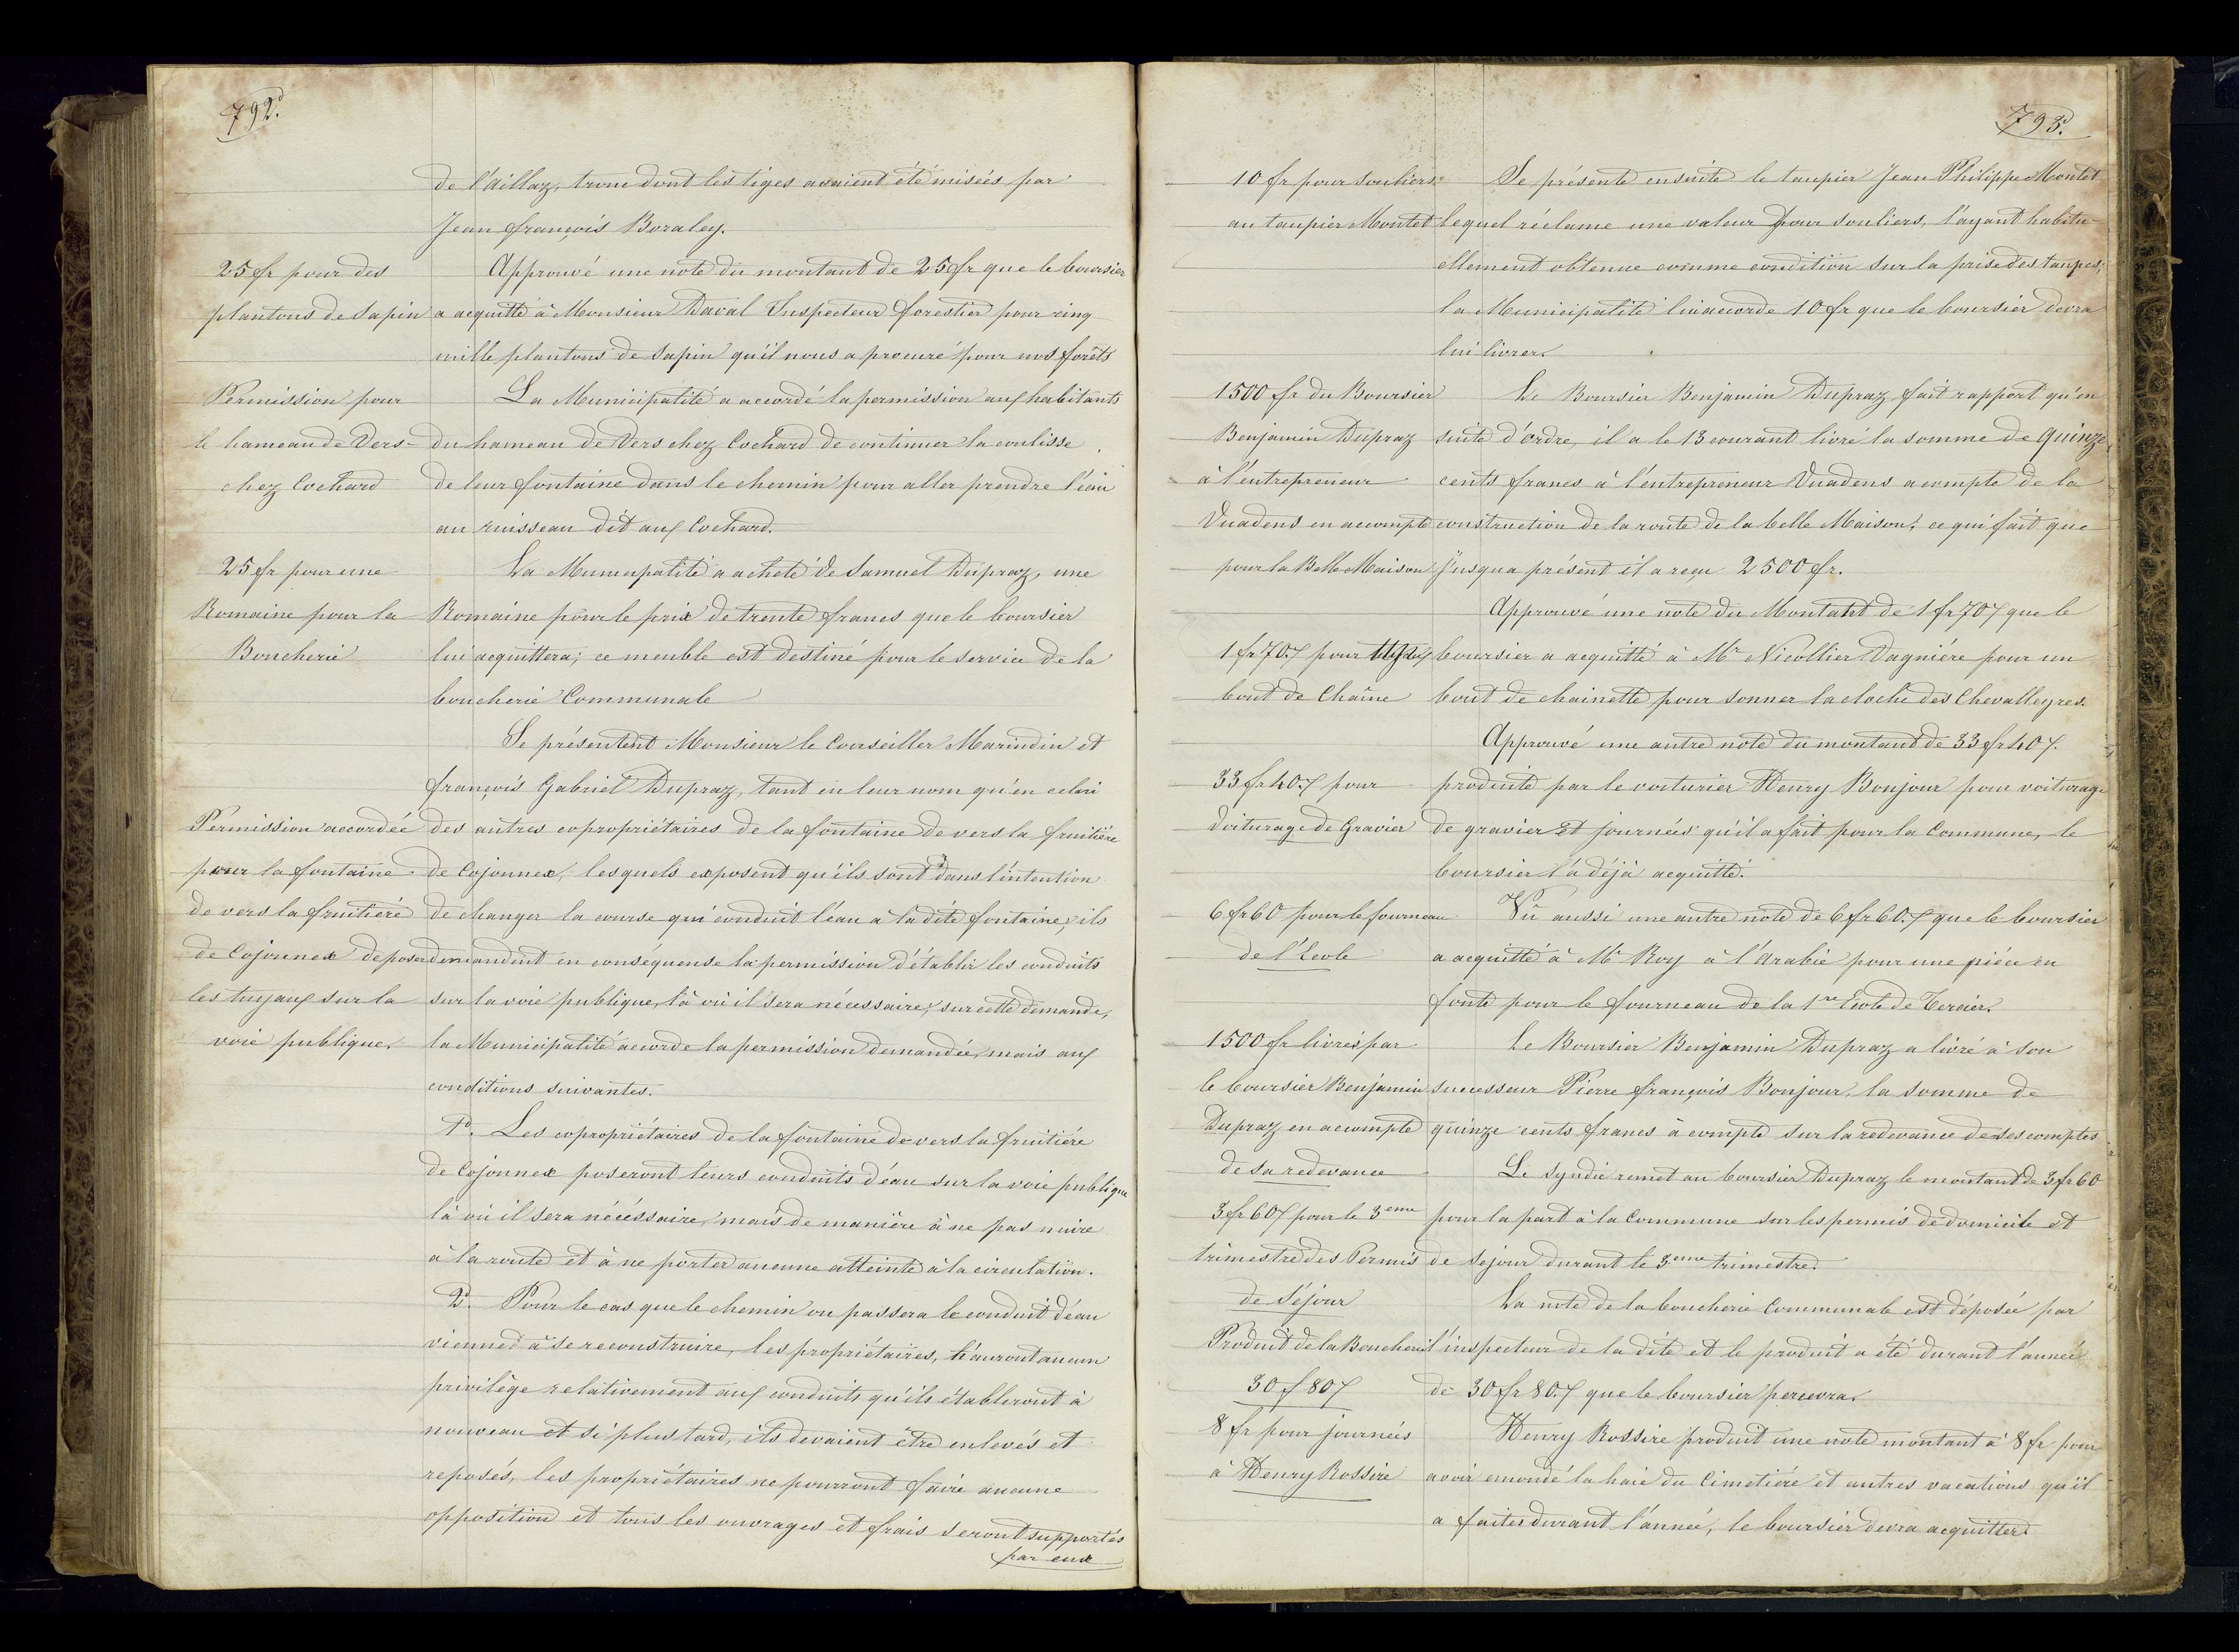 792.
de l'Aillaz, tronc dont les tiges avaient été misées par
Jean françois Boraley.
25 fr pour des
plantons de Sapin
Approuvé une note du montant de 25 fr que le boursier
a acquitté à Monsieur Daval Inspecteur forestier pour cinq
mille plantons de Sapin qu'il nous a procuré pour nos forêts
Permission pour
le hameau de Vers-
chez Cochard
La Municipalité a accordé la permission aux habitants
du hameau de Vers chez Cochard de continuer la coulisse
de leur fontaine dans le chemin pour aller prendre l'eau
au ruisseau dit aux Cochard.
25 fr pour une
Romaine pour la
Boucherie
La Municipalité a acheté de Samuel Dupraz, une
Romaine pour le prix de trente francs que le boursier
lui acquittera; ce meuble est destiné pour le service de la
boucherie Communale
Se présentent Monsieur le Conseiller Marindin et
françois Gabriel Dupraz, tant en leur nom qu'en celui
Permission accordée
pour la fontaine
de vers la fruitière
de Cojonnex de poser
les tuyaux sur la
voie publique.
des autres copropriétaires de la fontaine de vers la fruitière
de Cojonnex, lesquels exposent qu'ils sont dans l'intention
de changer la course qui conduit l'eau a la dite fontaine, ils
demandent en conséquense la permission d'établir les conduits
sur la voie publique, là où il sera nécessaire, sur cette demande,
la Municipalité acorde la permission demandée, mais aux
conditions suivantes.
1o. Les copropriétaires de la fontaine de vers la fruitière
de Cojonnex poseront leurs conduits d'eau sur la voie publique
là où il sera nécéssaire, mais de manière à ne pas nuire
à la route et à ne porter aucune atteinte à la circulation.
2o. Pour le cas que le chemin ou passera le conduit d'eau
vienned à se reconstruire, les propriétaires, n'auront aucun
privilège relativement aux conduits qu'ils établiront à
nouveau et si plus tard, ils devaient être enlevés et
reposés, les propriétaires ne pourront faire aucune
opposition et tous les ouvrages et frais seront supportés
par eux
793.
10 fr pour souliers
au taupier Montet
Se présente ensuite le taupier Jean Philippe Montet
lequel réclame une valeur pour souliers, l'ayant habitu-
ellement obtenue comme condition sur la prise des taupes,
la Municipalité lui accorde 10 fr que le boursier devra
lui livrer.
1500 fr du Boursier
Benjamin Dupraz
à l'entrepreneur
Vuadens en accompte
pour la Belle Maison
Le Boursier Benjamin Dupraz fait rapport qu'en
suite d'ordre, il a le 13 courant livré la somme de quinze
cents francs à l'entrepreneur Vuadens acompte de la
construction de la route de la belle Maison, ce qui fait que
jusqua présent il a reçu 2500 fr.
1 fr 70 pour
bout de Chaîne
Approuvé une note du Montant de 1 fr 70 que le
boursier a acquitté à Mr Nicollier Dagnière pour un
bout de chainette pour sonner la cloche des Chevalleyres.
33 fr 40 pour
voiturage de Gravier
Approuvé une autre note du montant de 33 fr 40.
produite par le voiturier Henry Bonjour pour voiturage
de gravier et journées qu'il a fait pour la Commune, le
boursier l'á déjà acquitté.
6 fr 60 pour le fourneau
de l'Ecole
Vû aussi une autre note de 6 fr 60 que le boursier
a acquitté à Mr Roy à l'Arabie pour une pièce en
fonte pour le fourneau de la 1re École de Tercier.
1500 fr livrés par
le boursier Benjamin
Dupraz en accompte
de sa redevance
Le Boursier Benjamin Dupraz a livré à son
successeur Pierre françois Bonjour, la somme de
quinze cents francs à compte sur la redevance de ses comptes
3 fr 60 pour le 3eme
trimestre des Permis
de Séjour
Le Syndic remet au boursier Dupraz le montant de 3 fr 60
pour la part à la Commune sur les permis de domicile et
de Sejour durant le 3eme trimestre.
Produit de la Boucherie
30 f 80
La note de la boucherie Communale est déposée par
l'inspecteur de la dite et le produit a été durant l'année
de 30 fr 80 que le boursier percevra.
8 fr pour journées
à Henry Rossire
Henry Rossire produit une note montant à 8 fr pour
avoir emondé la haie du Cimetière et autres vacations qu'il
a faites durant l'année, le boursier devra acquitter.